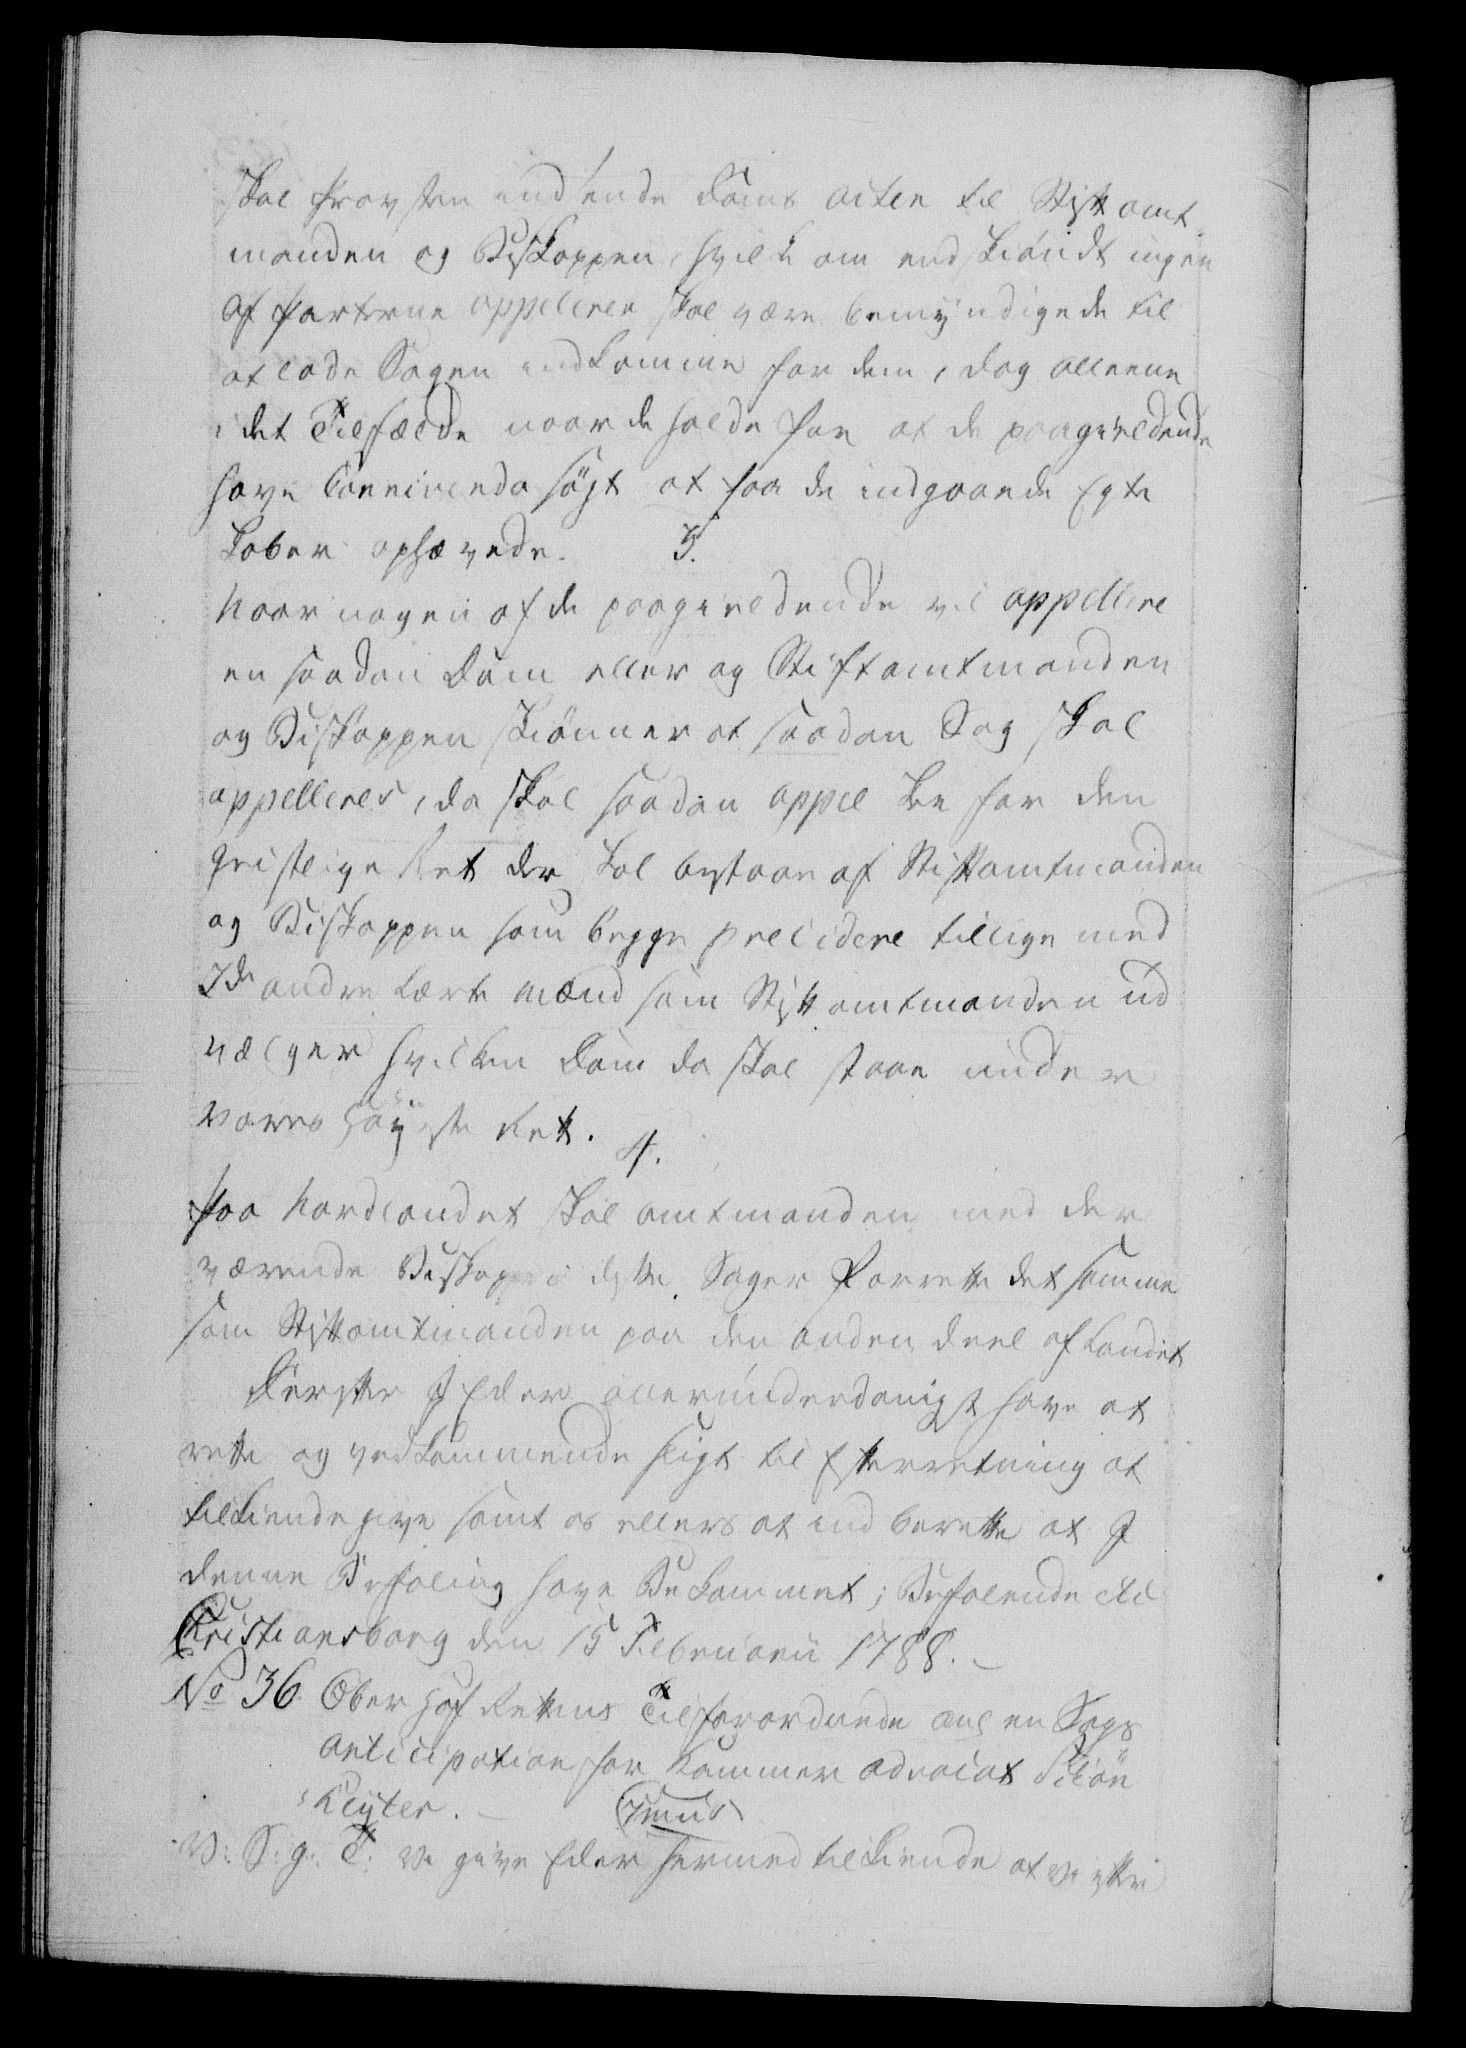 skal Provsten indsende Doms Acten til Stiftamt
manden og Biskoppen, hvilke om endskiøndt ingen
af Parterne appelerer skal være bemyndigede til
at lade Sagen indkomme for dem, dog alleene
i det Tilfælde naar de holde for at de paagieldende
have Connivendo søgt at faa de indgaaende Egte
skaber ophævede. 3.
Naar nogen af de paagieldende vil appellere
en saadan Dom eller og Stiftamtmanden
og Biskoppen skiønner at saadan Sag skal
appelleres, da skal saadan appel skee for den
geistlige Ret der skal bestaae af Stiftamtmanden
og Biskoppen som begge præsidere tillige med
7de andre lærte Mænd som Stiftamtmanden ud
vælger hvilken Dom da skal staae under
vores Høyeste Ret.
4.
Paa Nordlandet skal Amtmanden med der
værende Biskop i disse Sager forrette det samme
som Stiftamtmanden paa den anden Deel af Landet
Derefter I Eder allerunderdanigst have at
rette og vedkommende sligt til Efterretning at
tilkiendegive samt os ellers at indberette at I
denne Befaling have Bekommet; Befalende etc
Christiansborg den 15 Februarii 1788.
No 36 Ober Hof Rettens Tilforordnede anl en Sags
Anticipation for Kammer Advocat Schøn
heyter.
V: S: g: T: Vi give Eder hermed tilkiende at Vi efter